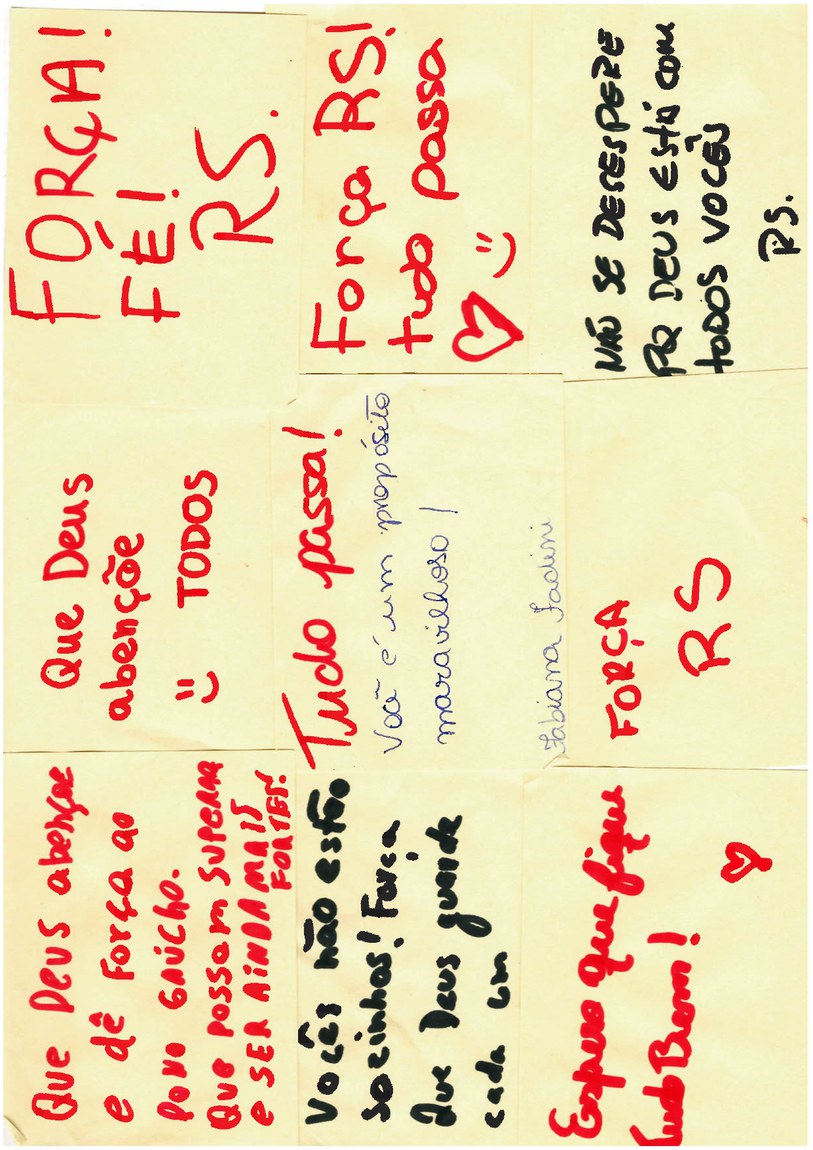 Que Deus abençoe
e dê Força ao
povo GAÚCHO.
Que possam SUPERAR
e SER AINDA MAIS
FORTES!
Que Deus
abençõe
TODOS
FORÇA!
FÉ!
RS.
Vocês não estão
socinhos! Força
Que Deus guarde
cada um
Tudo passa!
Você é um propósito
maravilhoso!
Fabiana Fadini
Força RS!
tudo passa
Espero que fique
tudo Bem!
FORÇA
RS
NÃO SE DESESPERE
PQ DEUS ESTÁ COM
TODOS VOCÊS
RS.